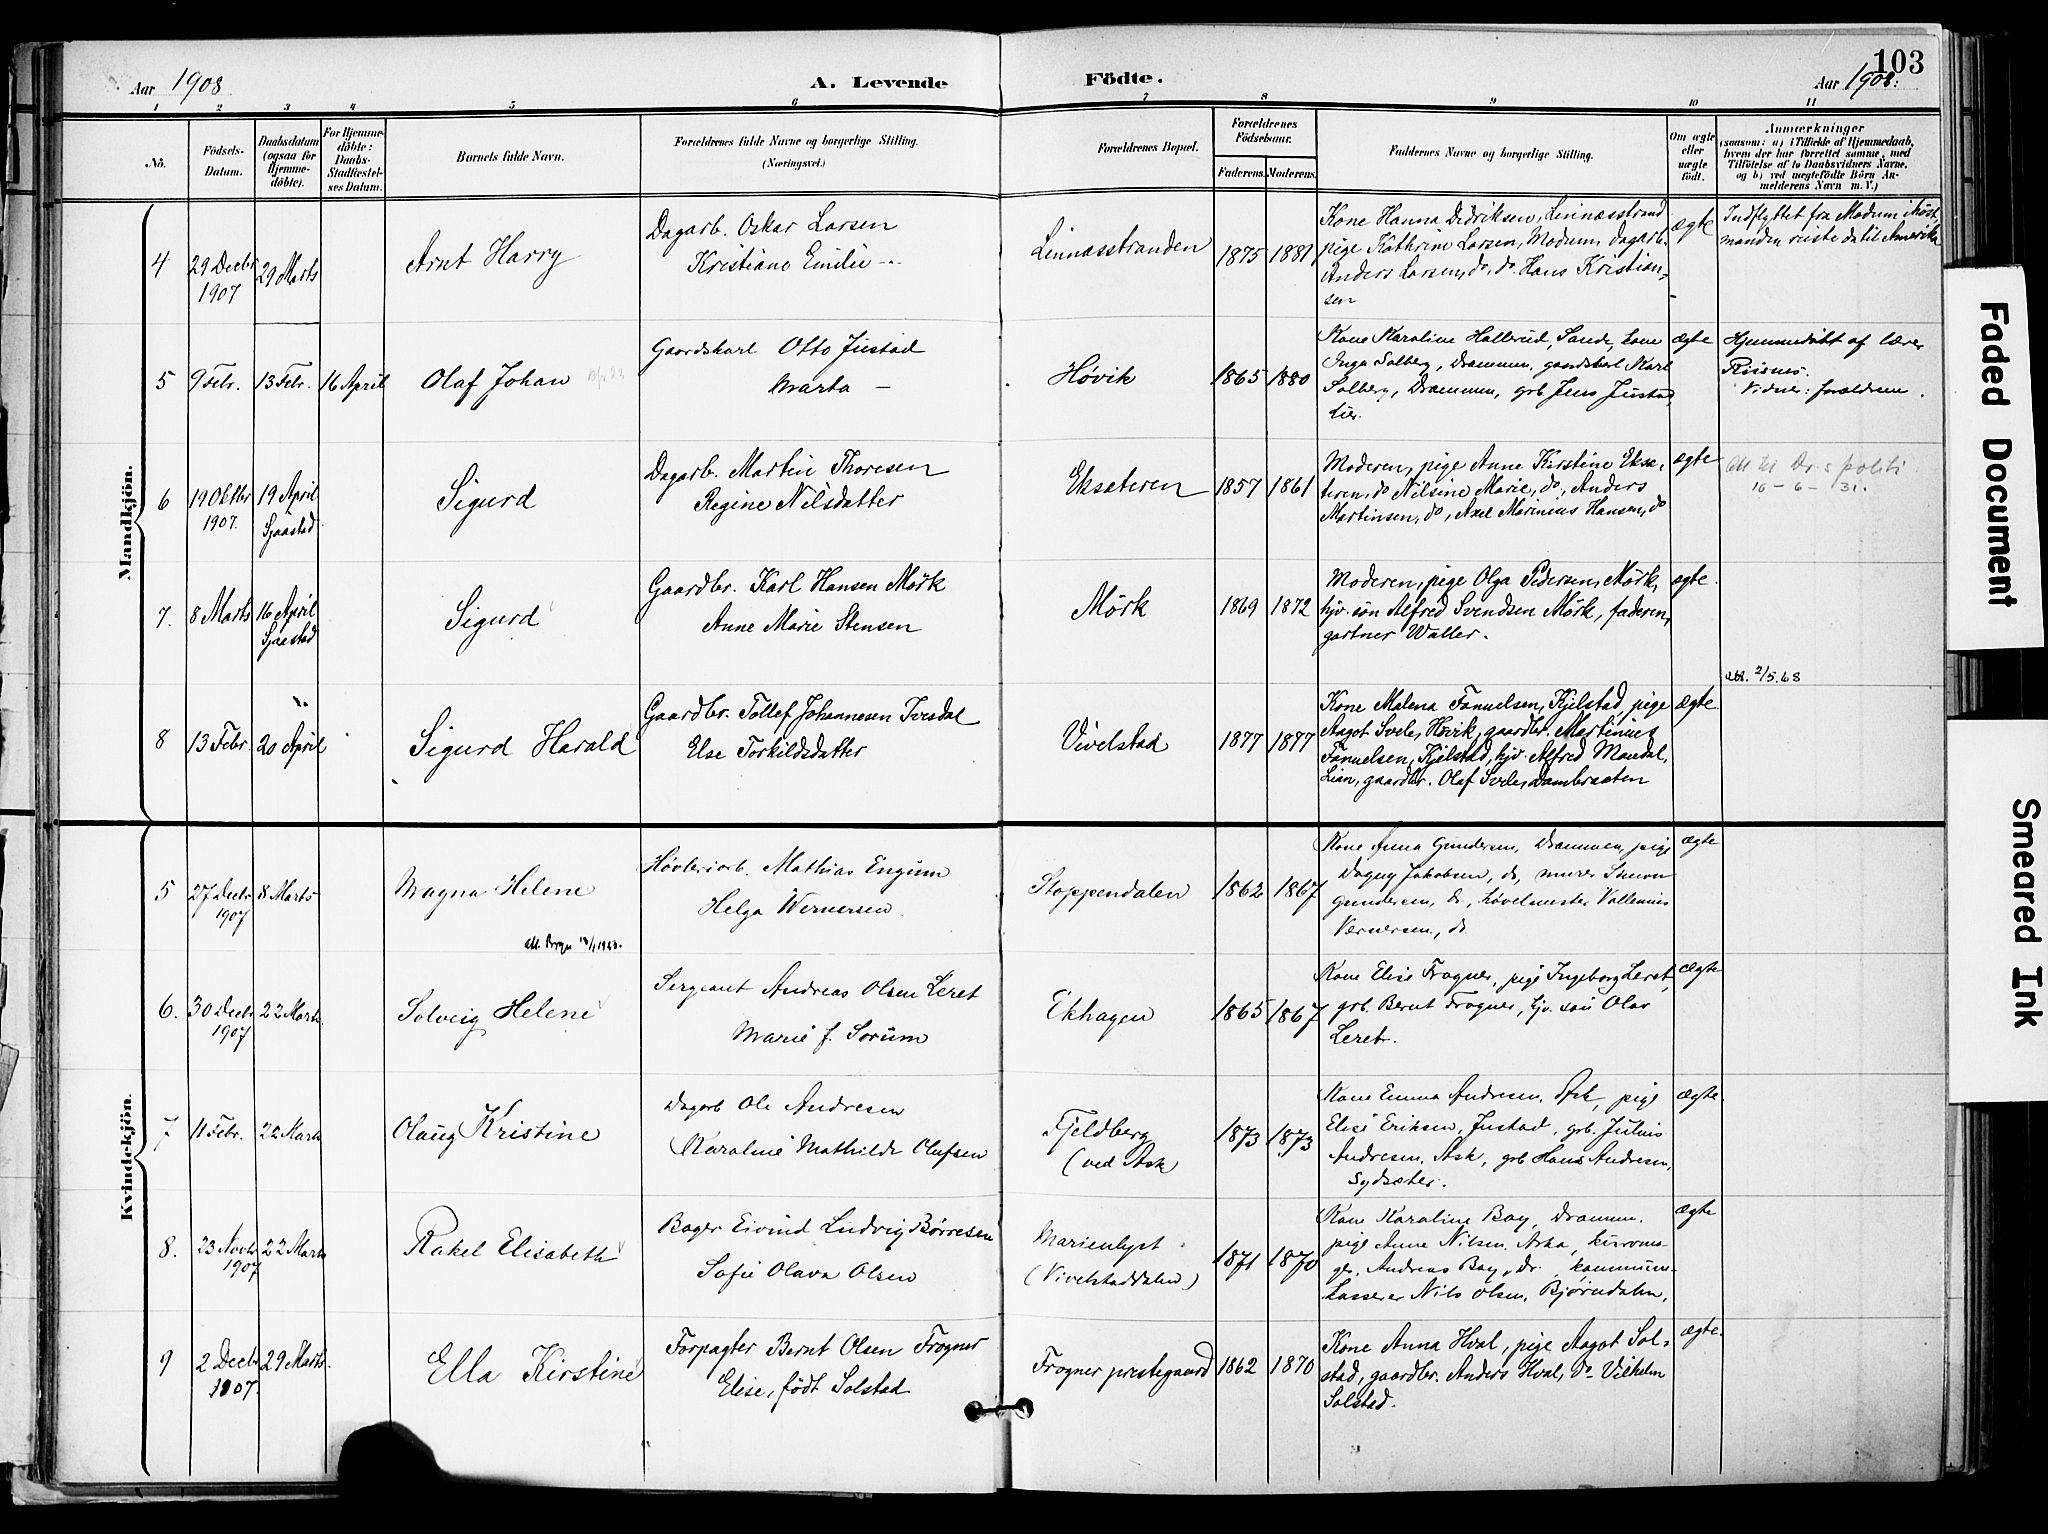 103
Aar 1908
A. Levende Födte.
Aar 1908.
1 2 3 4 5 6 7 8 9 10 11
No.
Födsels-Datum.
Daabsdatum (ogsaa for Hjemme-döbte).
For Hjemme-döbte: Daabs-Stadfæstel-ses Datum.
Barnets fulde Navn.
Forældrenes fulde Navne og borgerlige Stilling.
(Næringsvei.)
Forældrenes Bopæl.
Forældrenes Födselsaar.
Faderens. Moderens.
Faddernes Navne og borgerlige Stilling.
Om ægte eller uægte födt.
Anmærkninger
(saasom: a) i Tilfælde af Hjemmedaab,
hvem der har forrettet samme, med
Tilföielse af to Daabsvidners Navne,
og b) ved uægtefödte Börn An-
melderens Navn m. V.)
Mandkjön.
4 29 Decbr 1907 29 Marts
Arnt Harry
Dagarb. Oskar Larsen
Kristiane Emilie —
Linnæsstranden
1875 1881
Kone Hanna Didriksen, Linnæsstrand
pige Kathrine Larsen, Modum, dagarb.
Anders Larsen, do, do. Hans Kristian-
sen
ægte
Indflyttet fra Modum i høst,
manden reiste da til Amerika
5 9 Febr. 13 Febr. 16 April
Olaf Johan
Gaardskarl Otto Justad
Marta —
Høvik
1865 1880
Kone Karoline Hallerud, Sande, kone
Inga Solberg, Drammen, gaardskarl Karl
Solberg, Drammen, grb Jens Justad,
Lier.
ægte
Hjemmedøbt af lærer
Risenes.
Vidner: forældrene.
6 19 Oktbr 1907. 19 April Sjaastad
Sigurd
Dagarb. Martin Thoresen
Regine Nilsdatter
Eksæteren
1857 1861
Moderen, pige Anne Kirstine Eksæ-
teren, do Nilsine Marie, do, Anders
Martinsen, do, Axel Marinius Hansen, do
ægte
Att til Dr.s politi
16 - 6 - 31.
7. 8 Marts 16 April Sjaastad
Sigurd
Gaardbr. Karl Hansen Mörk
Anne Marie Stensen
Mörk
1869 1872
Moderen, pige Olga Pedersen, Mörk,
hjv. søn Alfred Svendsen Mörk, faderen,
gartner Waller.
ægte.
att. 2/5.68
8 13 Febr. 20 April
Sigurd Harald
Gaardbr. Tollef Johannesen Ivesdal
Else Torkildsdatter
Vivelstad
1877 1877
Kone Malena Fanuelsen, Kjelstad, pige
Aagot Svele, Høvik, gaardbr. Martinius
Fanuelsen, Kjelstad, hjv. Alfred Mandal,
Lian, gaardbr. Olaf Svele, Dambraaten
ægte
Kvindekjön.
5 27 Decbr 1907 8 Marts
Magna Helene
Høvleriarb. Mathias Engum
Helga Wernersen.
Stoppendalen
1862 1867
Kone Anna Gundersen, Drammen, pige
Dagny Jakobsen, do, murer Simon
Gundersen, do, høvelmester Vallenius
Vernersen, do
ægte
6. 30 Decbr 1907 22 Marts
Solveig Helene
Sergeant Andreas Olsen Leret
Marie f. Sørum
Ekhagen
1865 1867
Kone Elise Frogner, pige Ingeborg Leret,
grb. Bernt Frogner, hjv. søn Olav
Leret.
ægte
7 11 Febr. 22 Marts
Olaug Kristine
Dagarb Ole Andresen
Karoline Mathilde Olufsen
Fjeldberg
(ved Ask)
1873 1873
Kone Emma Andresen, Ask, pige
Elise Eriksen, Justad, grb. Julius
Andresen, Ask, grb Hans Andresen,
Sydsæter.
ægte.
8. 23 Novbr 1907 22 Marts
Rakel Elisabeth
Bager Eivind Ludvig Børresen
Sofie Olava Olsen
Marienlyst
(Vivelstaddalen)
1871 1870
Kone Karoline Bay, Drammen.
pige Anne Nilsen, Aska,
Andreas Bay, Dr. kommune-
kasserer Nils Olsen, Bjørndalen,
ægte
9 2 Decbr 1907. 29 Marts.
Ella Kirstine
Forpagter Bernt Olsen Frogner
Elise, født Solstad
Frogner prestegaard
1862 1870
Kone Anna Hval, pige Aagot Sol-
stad, gaardbr. Anders Hval, do Vilhelm
Solstad.
ægte.
Faded Document
Smeared Ink